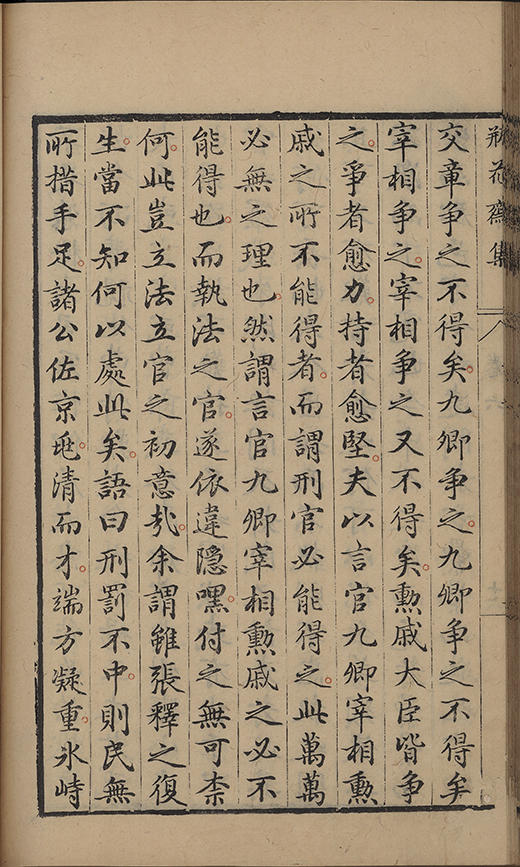 瓶花齋集
交章争之不得矣九卿争之九卿争之不得矣
宰相争之宰相争之又不得矣勲戚大臣皆争
之爭者愈力持者愈堅夫以言官九卿宰相勲
戚之所不能得者而謂刑官必能得之此萬萬
必無之理也然謂言官九卿宰相勲戚之必不
能得也而執法之官遂依違隱嘿付之無可柰
何此豈立法立官之初意㢤余謂雖張釋之復
生當不知何以處此矣語曰刑罰不中則民無
所措手足諸公佐京兆清而才端方凝重氷峙